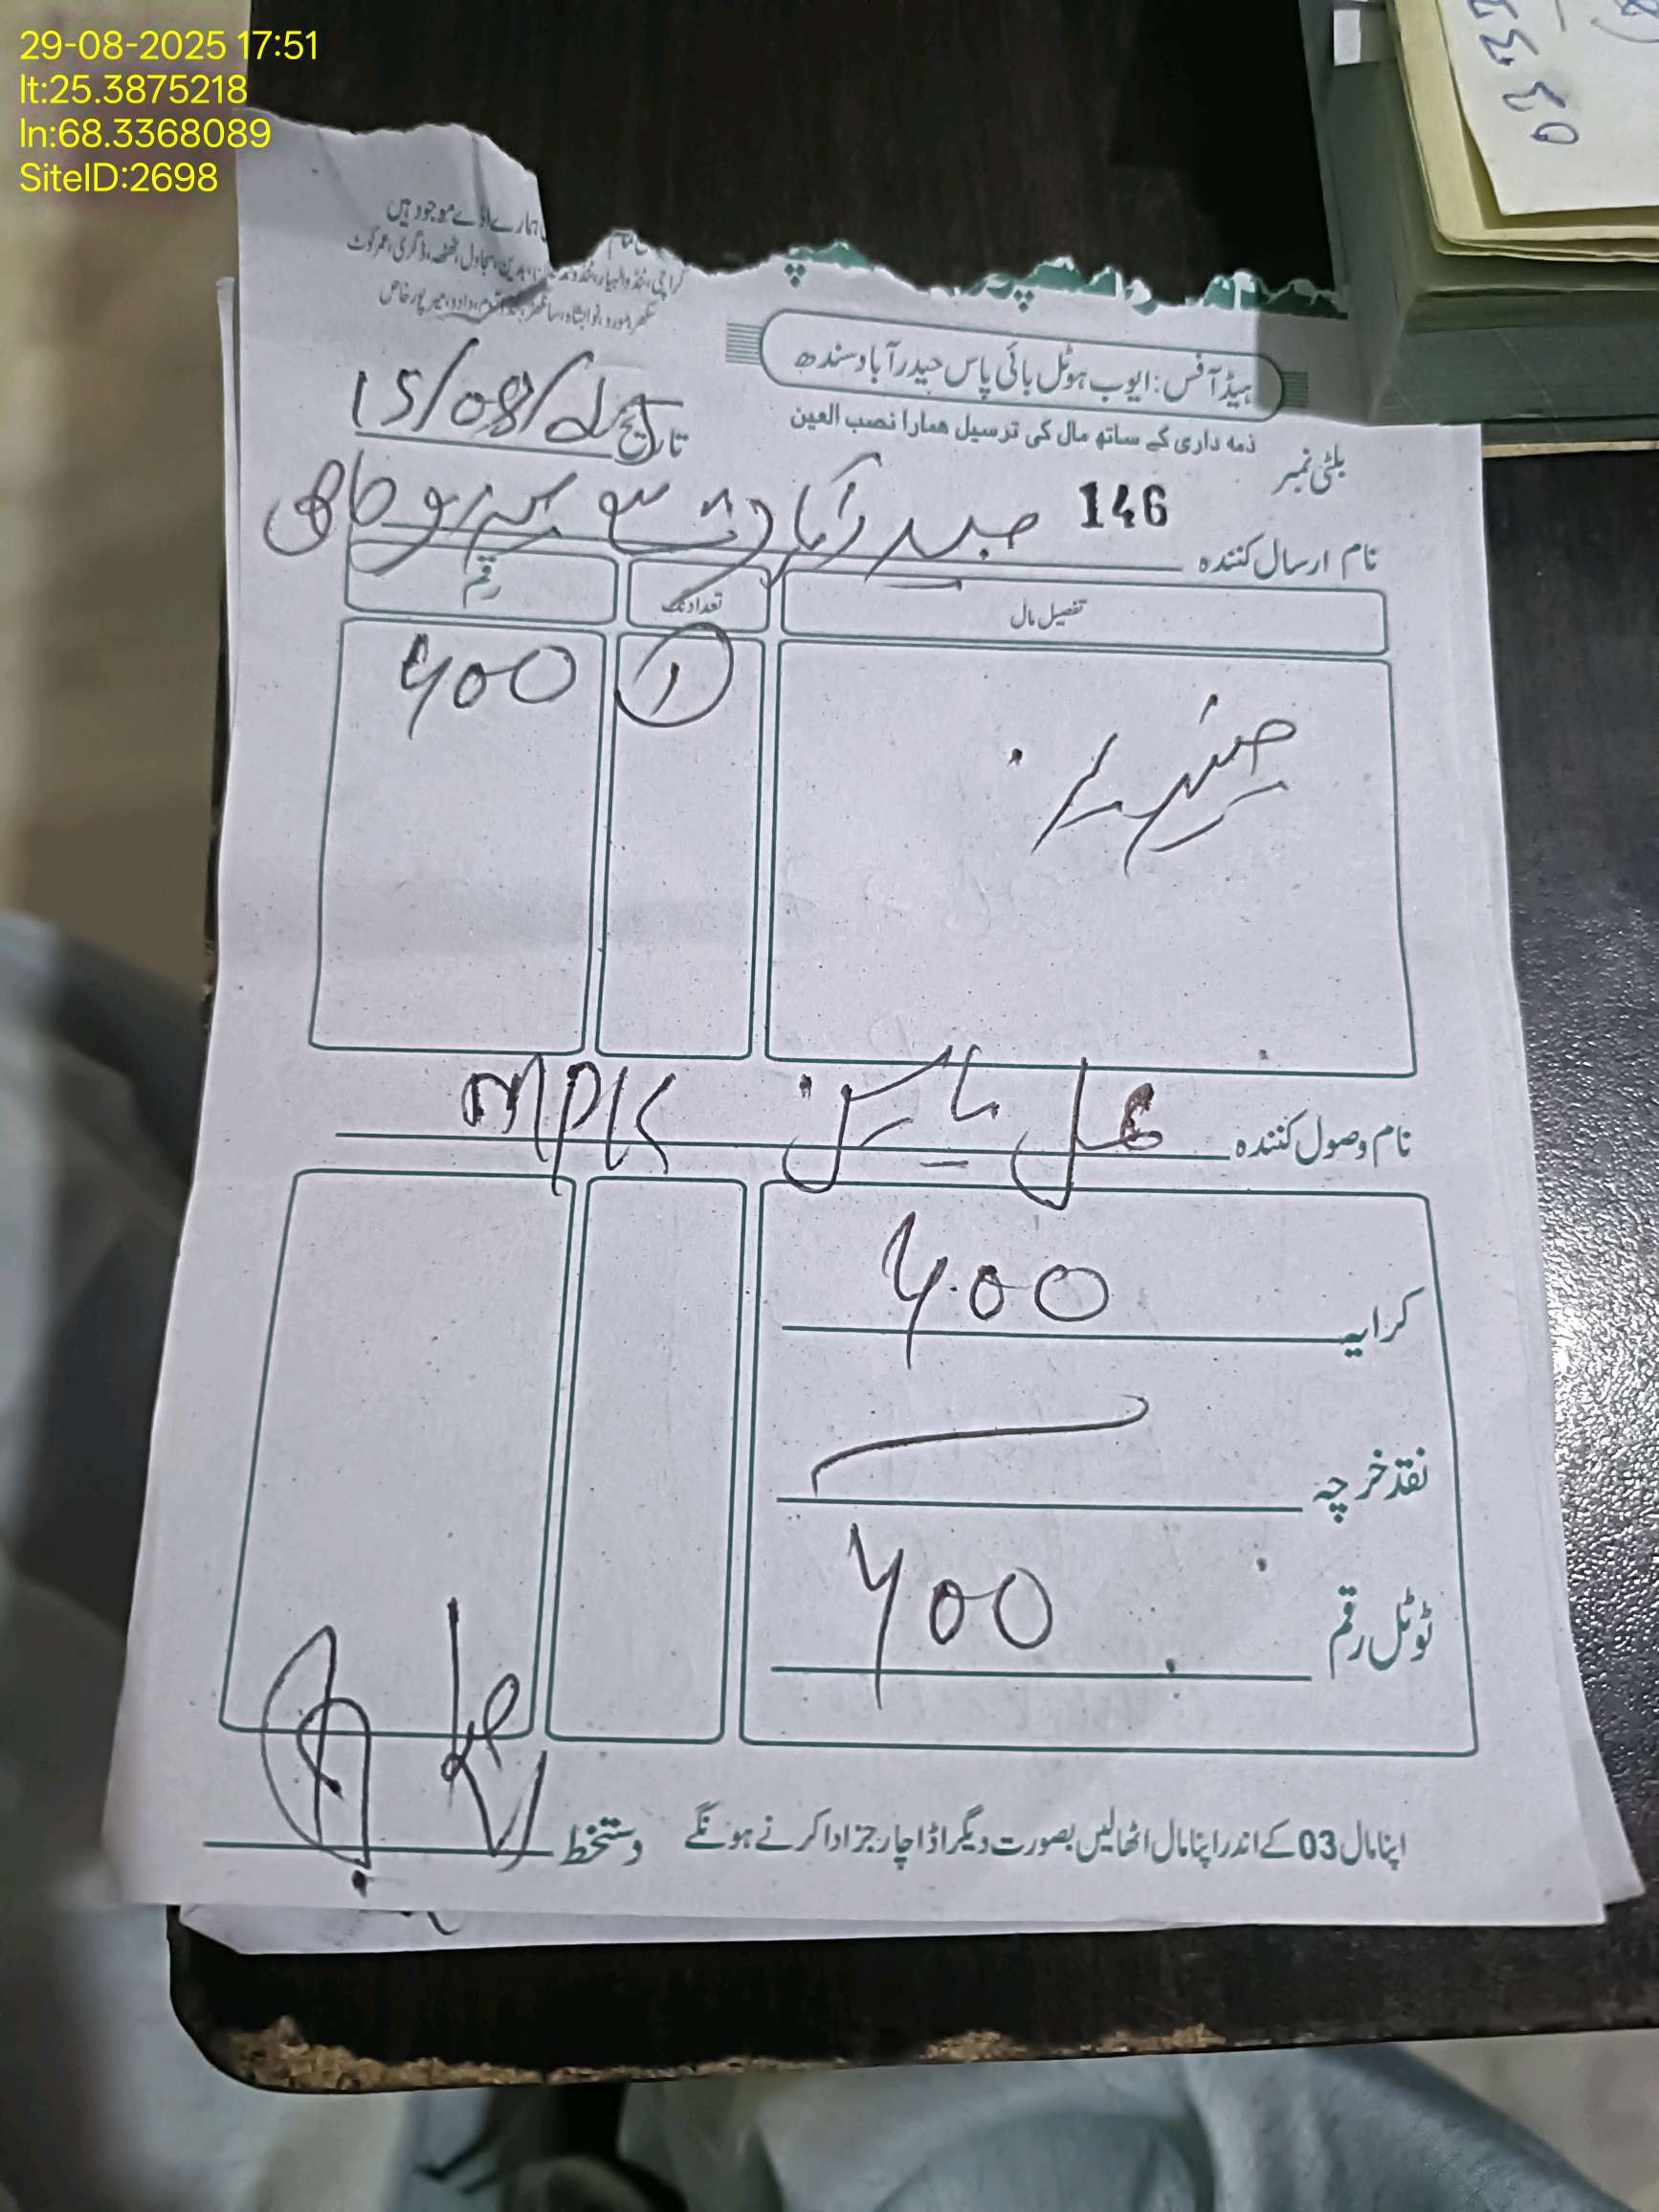 29-08-2025 17:51
lt:25.3875218
ln:68.3368089
SiteID:2698
ہمارے اڈے موجود ہیں
کراچی، ٹنڈوالہیار، بدین، سجاول، ٹھٹھہ، ڈگری، عمرکوٹ
سکھر، مورو، نوابشاہ، سانگھڑ، دادو، میرپورخاص
ہیڈ آفس: ایوب ہوٹل بائی پاس حیدرآباد سندھ
ذمہ داری کے ساتھ مال کی ترسیل ہمارا نصب العین
تاریخ 15/08/
بلٹی نمبر 146
نام ارسال کنندہ حیدرآباد سے میرپوخاص
تفصیل مال تعداد نگ رقم
جنریٹر ۱ ۴00
نام وصول کنندہ MPK
کرایہ ۴00
نقد خرچہ
ٹوٹل رقم ۴00
اپنا مال 03 کے اندر اپنا مال اٹھالیں بصورت دیگر اڈا چارجز ادا کرنے ہونگے دستخط